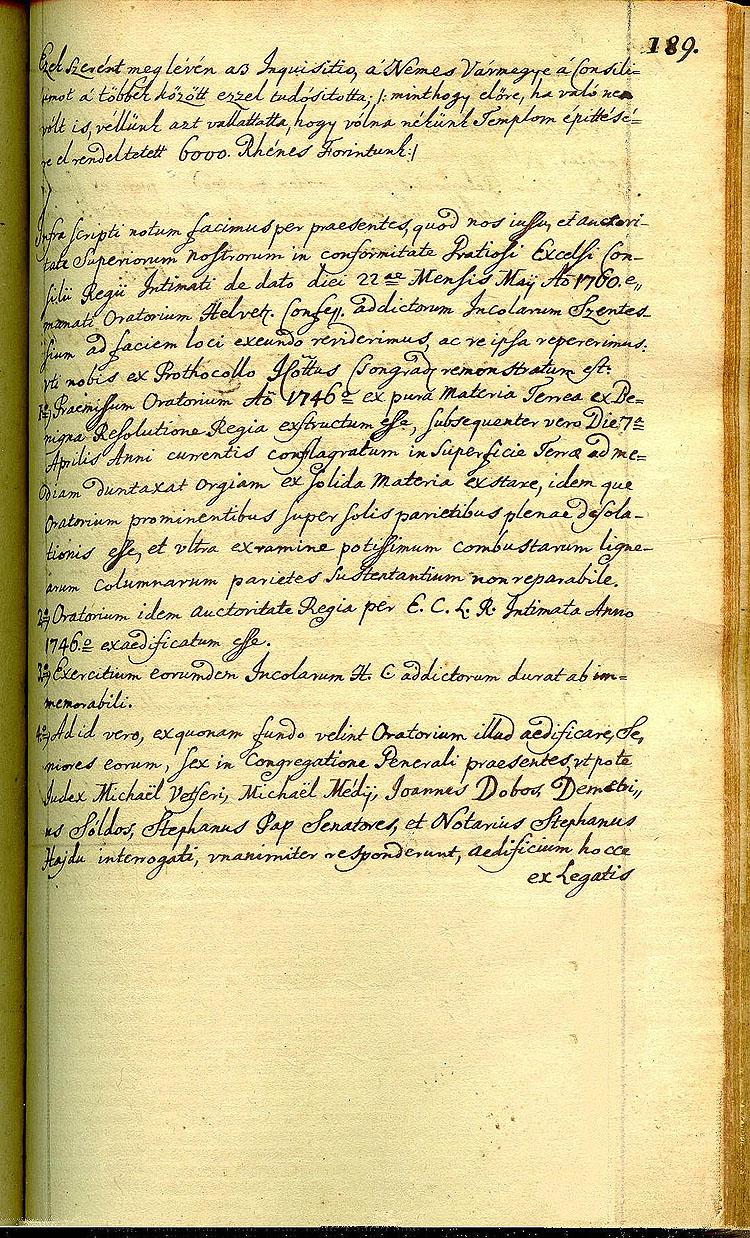 189.
Ezek szerént meg lévén az Inquisitio, á Nemes Vármegye á Consili-
umot á többek között ezzel tudósitotta; /: minthogy előre, ha való nem
vólt is, véllünk azt vallattatta, hogy vólna nékünk Templom épittésé=
re el rendeltetett 6000. Rhénes Forintunk :/
Infra scripti notum facimus per praesentes, quod nos iussu, et auctori-
tate Superiorum nostrorum in conformitate Gratiosi Excelsi Con-
silii Regii Intimati de dato diei 22ae Mensis Maij Ao 1760. e„
manati Oratorium Helvet. Confess. addictorum Incolarum Szentes-
sium ad faciem loci exeundo reviderimus, ac re ipsa repererimus.
vti nobis ex Prothocollo I. Cottus Csongrad remonstratum est:
1o, Praemissum Oratorium Ao 1746o ex pura Materia Terrea ex Be-
nigna Resolutione Regia exstructum esse, subsequenter vero Die 7a
Aprilis Anni currentis conflagratum in Superficie Terrae ad me=
diam duntaxat Orgiam ex solida Materia exstare, idem que
Oratorium prominentibus super solis parietibus plenae desola-
tionis esse, et vltra examine potissimum combustarum ligne-
arum columnarum parietes sustentantium non reparabile.
2o, Oratorium idem auctoritate Regia per E. C. L. R. Intimata Anno
1746.o exaedificatum esse.
3o, Exercitium eorumdem Incolarum H. C addictorum durat ab im=
memorabili.
4o, Ad id vero, ex quonam fundo velint Oratorium illud aedificare, Se„
niores eorum, sex in Congregatione Generali praesentes, vt pote
Judex Michaël Vefseri, Michaël Médij, Joannes Dobos, Demetri„
us Soldos, Stephanus Pap Senatores, et Notarius Stephanus
Hajdu interrogati, vnanimiter responderunt, aedificium hocce
ex Legatis